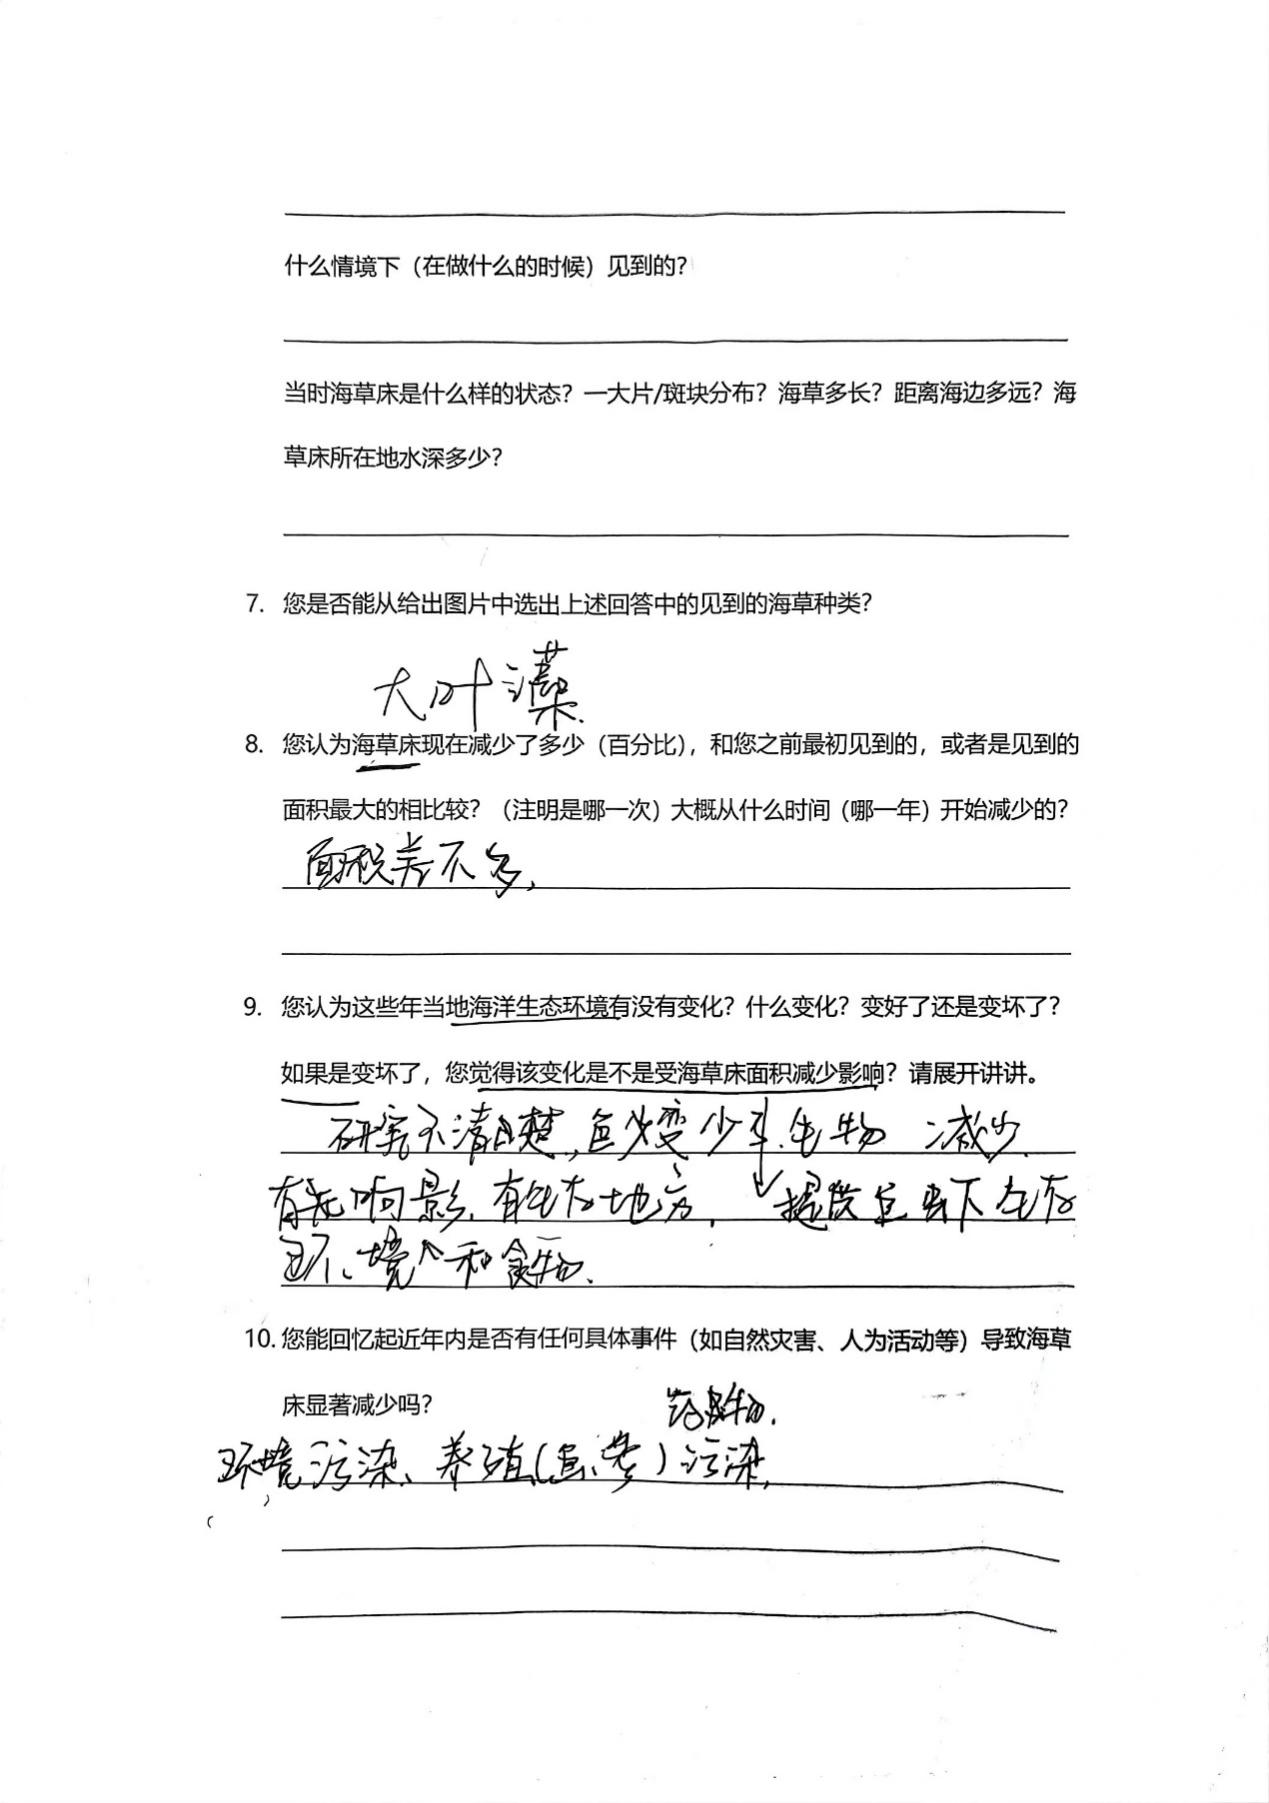 什么情境下（在做什么的时候）见到的？
当时海草床是什么样的状态？一大片/斑块分布？海草多长？距离海边多远？海
草床所在地水深多少？
7. 您是否能从给出图片中选出上述回答中的见到的海草种类？
大叶藻.
8. 您认为海草床现在减少了多少（百分比），和您之前最初见到的，或者是见到的
面积最大的相比较？（注明是哪一次）大概从什么时间（哪一年）开始减少的？
面积差不多,
9. 您认为这些年当地海洋生态环境有没有变化？什么变化？变好了还是变坏了？
如果是变坏了，您觉得该变化是不是受海草床面积减少影响？请展开讲讲。
研究不清楚,鱼少变少了.生物 减少.
有影响,有生存地方, 提供鱼虫下生存
环境和食物.
10. 您能回忆起近年内是否有任何具体事件（如自然灾害、人为活动等）导致海草
床显著减少吗？
环境污染、养殖(鱼、参)污染,